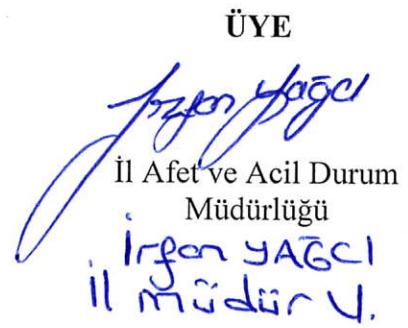 ÜYE
İrfan Yağcı
İl Afet ve Acil Durum
Müdürlüğü
İrfan YAĞCI
il müdür V.